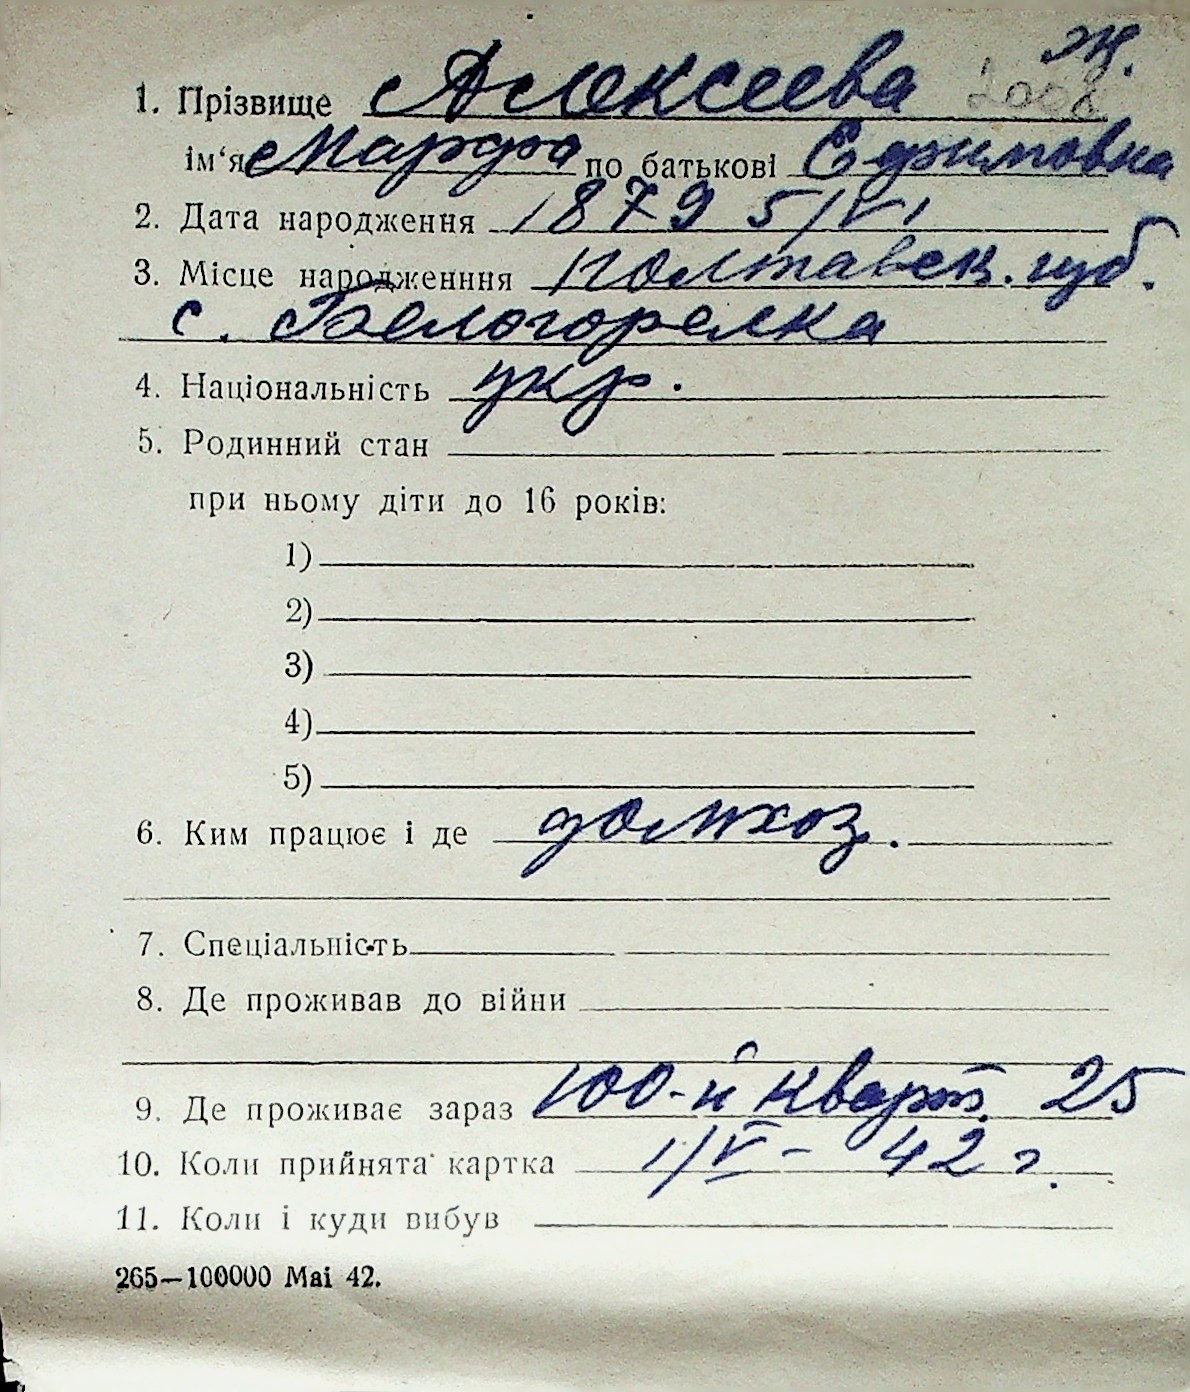 Ж.
1. Прізвище Алексеева 2008
ім‘я Марфа по батькові Ефимовна
2. Дата народження 1879 5/VI
3. Місце народженння Полтавск. губ.
с. Белогорелка
4. Національність укр.
5. Родинний стан
при ньому діти до 16 років:
1)
2)
3)
4)
5)
6. Ким працює і де домхоз.
7. Спеціальність
8. Де проживав до війни
9. Де проживає зараз 100-й кварт. 25
10. Коли прийнята картка 1/V - 42 г.
11. Коли і куди вибув
265—100000 Mai 42.